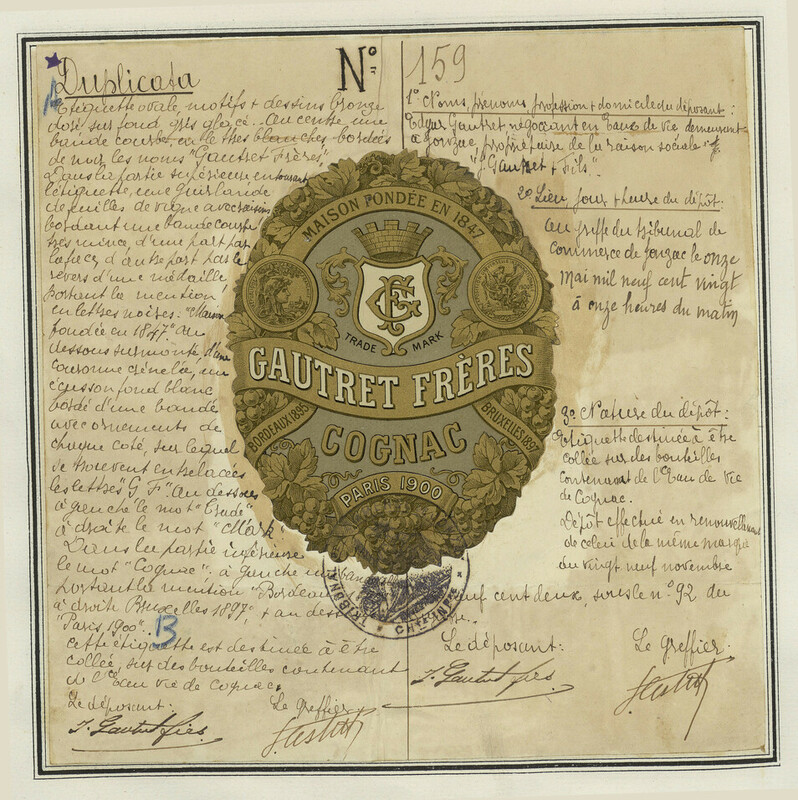 Duplicata
Etiquette ovale, motifs & dessins bronze
doré, sur fond gris glacé. Au centre une
bande courbe en lettres blanches bordés
de noir les noms "Gautret Frères"
Dans la partie supérieure entourant
l'étiquette, une guirlande
de feuilles de vigne avec raisins
bordant une bande courbe
très mince, d'une part par
la face, d'autre part par le
revers d'une médaille,
portant la mention
en lettres noires: "Maison
fondée en 1847" Au
dessous surmonté, d'une
couronne crénelée, un
écusson fond blanc
bordé d'une bande
avec ornements de
chaque coté, sur lequel
se trouvent entrelacées
les lettres "G F" Au dessous
à gauche le mot "Trade"
à droite le mot "Mark"
Dans la partie inférieure
le mot "Cognac", à gauche
portant la mention "Bordeaux
à droite Bruxelles 1897", & au dess
"Paris 1900".
B
cette étiquette est destinée à être
collée, sur des bouteilles contenant
de l'Eau vie de Cognac.
Le déposant: Le Greffier
J. Gautret fils
No 159
1o Noms, prénoms, profession & domicile du déposant:
Edgar Gautret négociant en Eaux de vie demeurant
à Jonzac, propriétaire de la raison sociale
"J. Gautret & Fils".
2o Lieu, jour & heure du dépôt:
Au greffe du tribunal de
Commerce de Jonzac le onze
Mai mil neuf cent vingt
à onze heures du matin
3o Nature du dépôt:
Etiquette destinée à être
collée sur des bouteilles
contenant de l'Eau de Vie
de Cognac.
Dépôt effectué en renouvellement
de celui de la même marque
du vingt neuf novembre
neuf cent deux, sous le no 92 du
Le déposant: Le Greffier.
J. Gautret fils
MAISON FONDÉE EN 1847
GF
TRADE MARK
GAUTRET FRÈRES
BORDEAUX 1895
BRUXELLES 1897
COGNAC
PARIS 1900